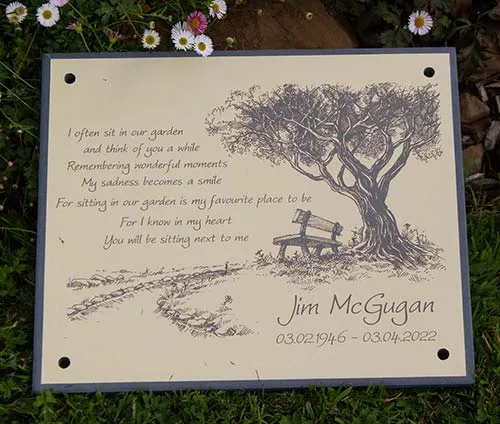 I often sit in our garden
and think of you a while
Remembering wonderful moments
My sadness becomes a smile
For sitting in our garden is my favourite place to be
For I know in my heart
You will be sitting next to me
Jim McGugan
03.02.1946 - 03.04.2022